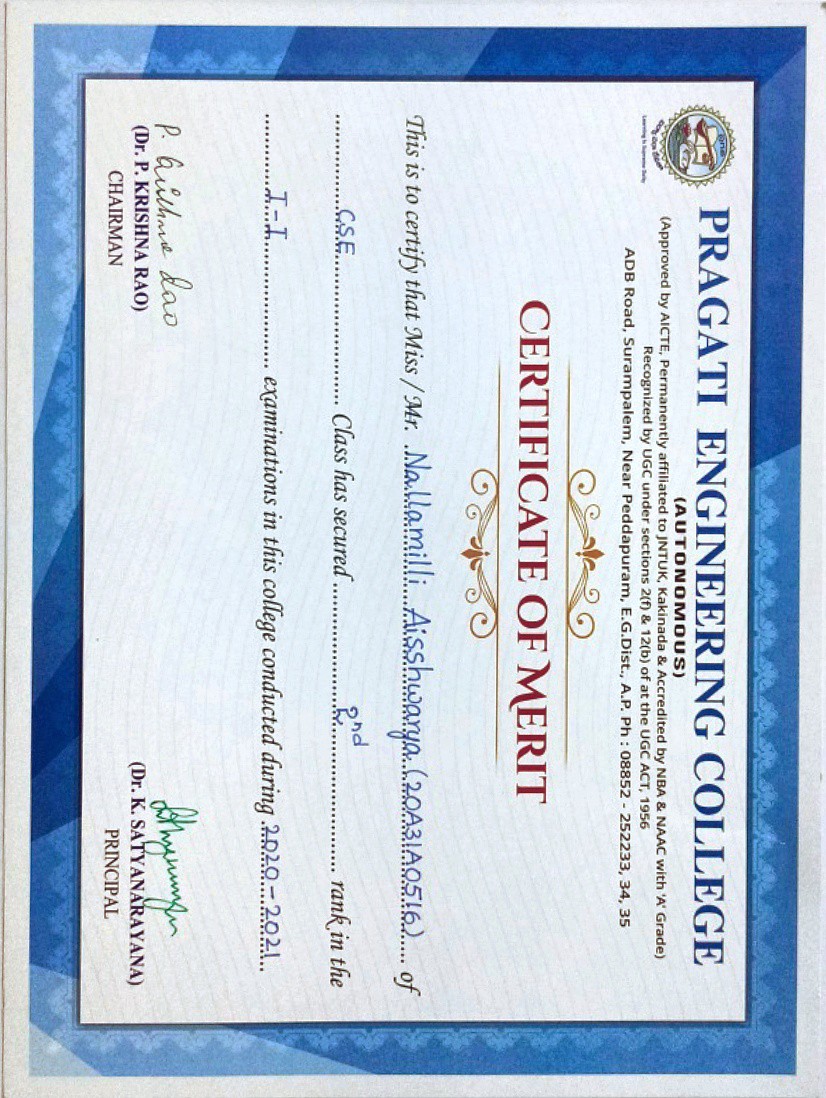 PRAGATI ENGINEERING COLLEGE
(AUTONOMOUS)
(Approved by AICTE, Permanently affiliated to JNTUK, Kakinada & Accredited by NBA & NAAC with 'A' Grade)
Recognized by UGC under sections 2(f) & 12(b) of at the UGC ACT, 1956
ADB Road, Surampalem, Near Peddapuram, E.G.Dist., A.P. Ph : 08852 - 252233, 34, 35
Learning Is Supreme Deity
CERTIFICATE OF MERIT
This is to certify that Miss / Mr. Nallamilli Aisshwarya (20A31A0516) of
CSE Class has secured 2nd rank in the
I-I examinations in this college conducted during 2020-2021
P. Krishna Rao
(Dr. P. KRISHNA RAO)
CHAIRMAN
(Dr. K. SATYANARAYANA)
PRINCIPAL